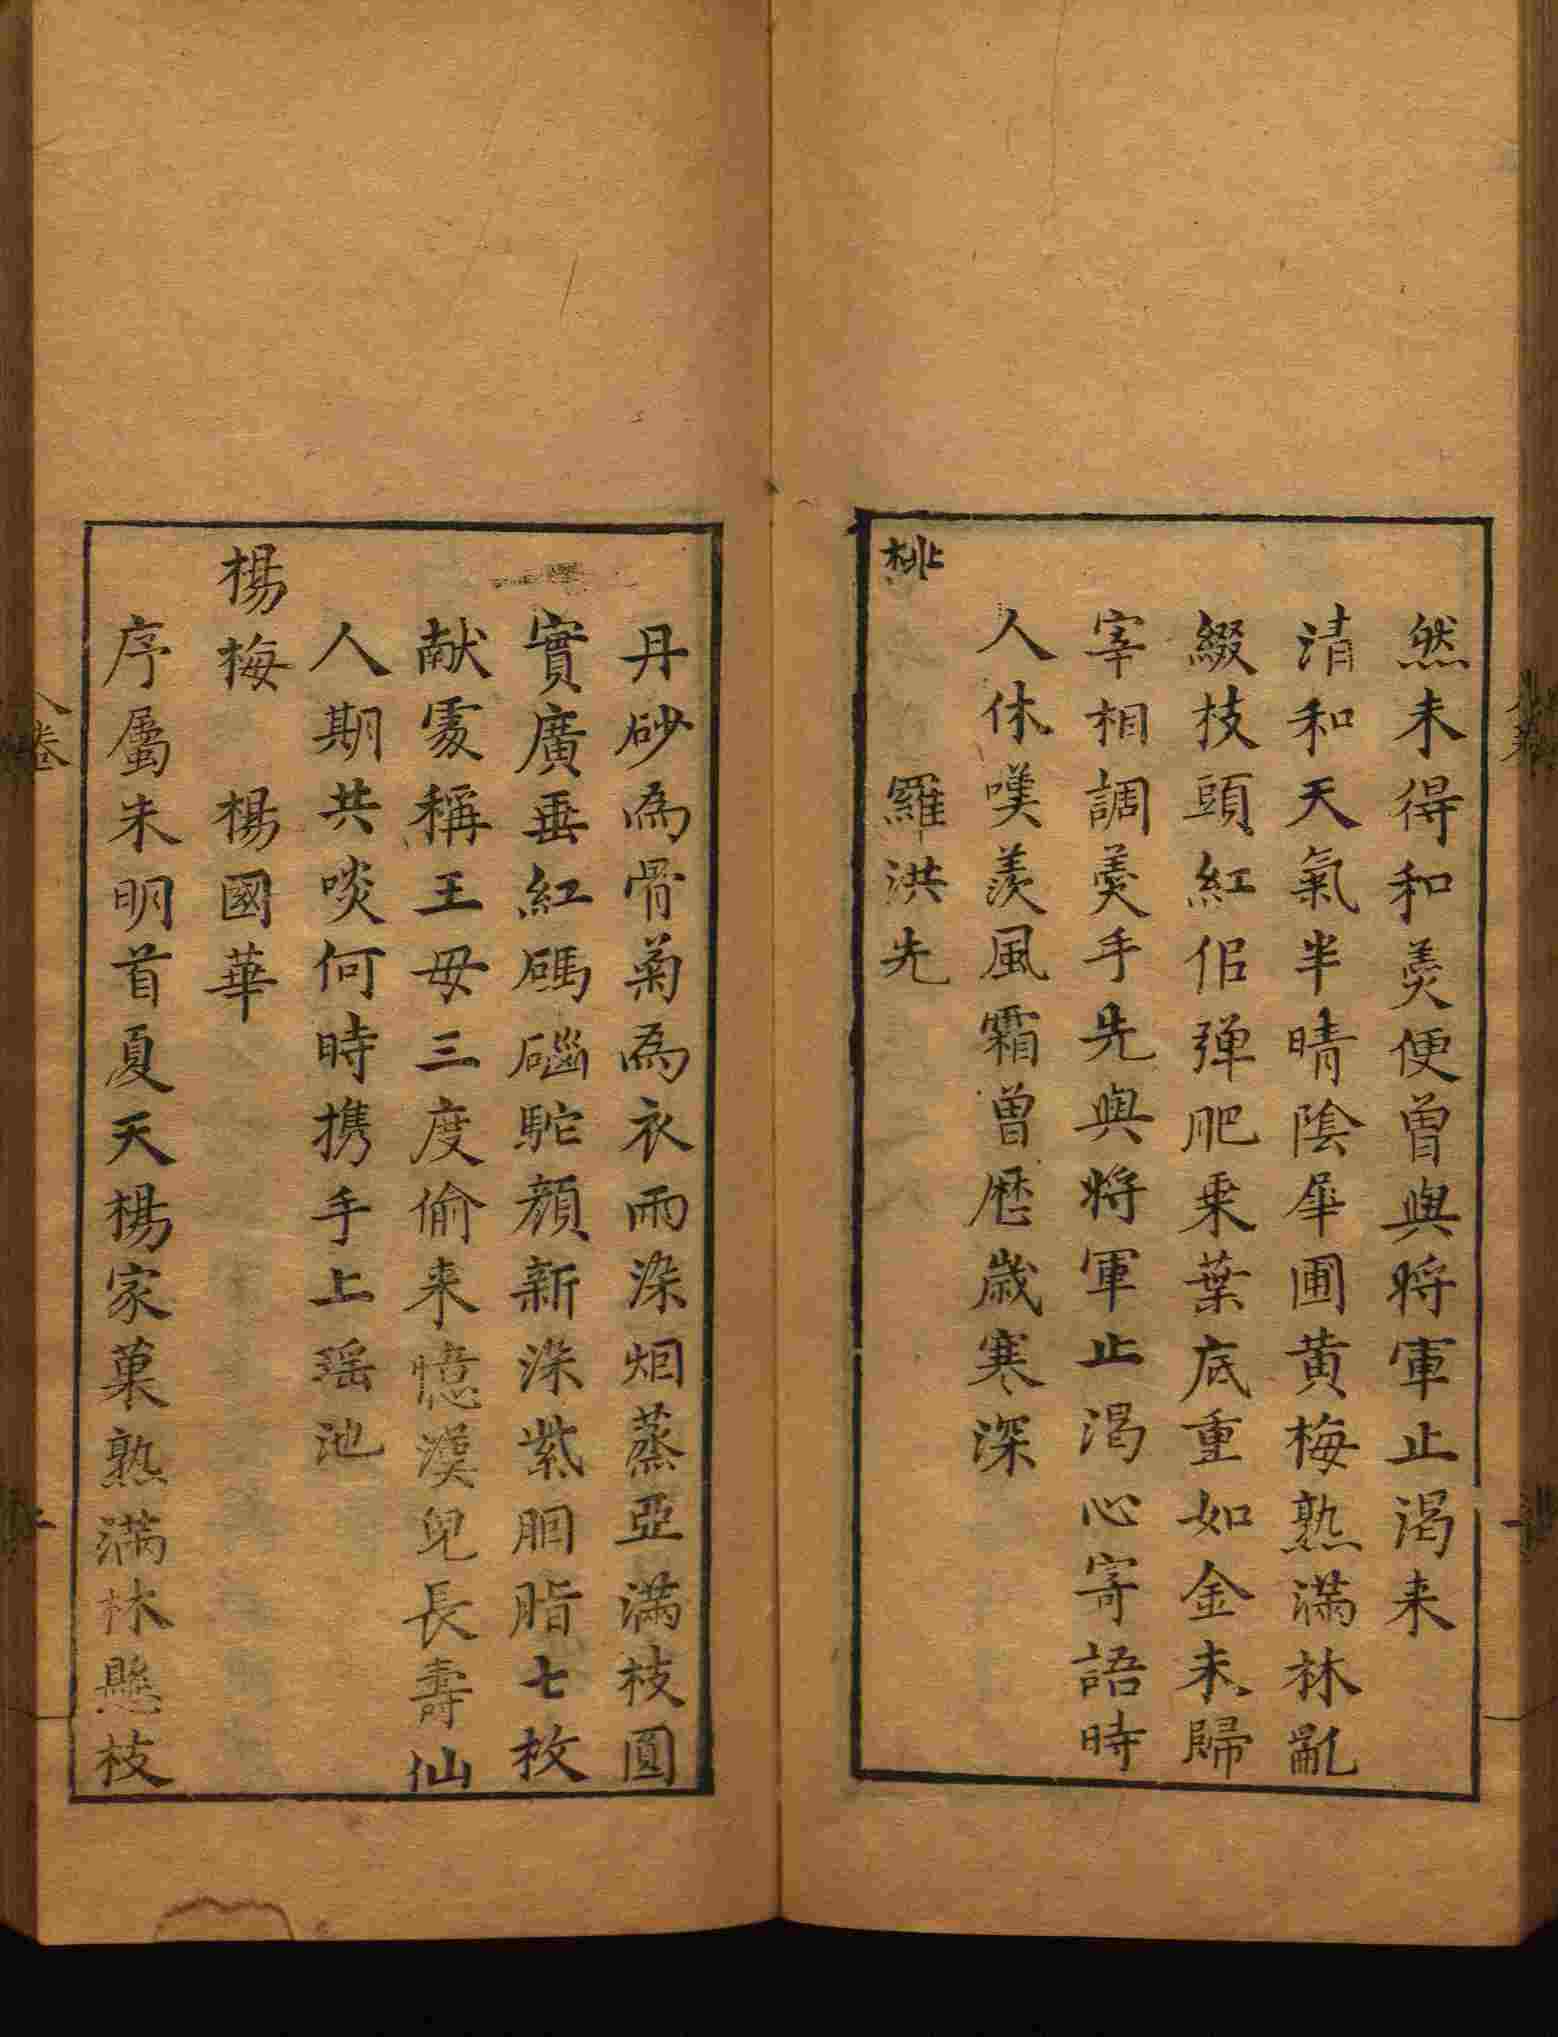 然未得和羮便曾與将軍止渴来
清和天氣半晴陰犀圃黄梅熟满林亂
綴枝頭紅佀弹肥乗葉底重如金未歸
宰相調羮手先與将軍止渴心寄語時
人休嘆羡風霜曾歴歳寒深
桃
羅洪先
丹砂為骨菊為衣雨染烟蒸亞滿枝圓
實廣垂紅碼碯駝顔新染紫胭脂七枚
献䖏稱王母三度偷来憶漢皃長壽仙
人期共啖何時携手上瑶池
楊梅 楊國華
序屬朱明首夏天楊家菓熟滿林懸枝
卷